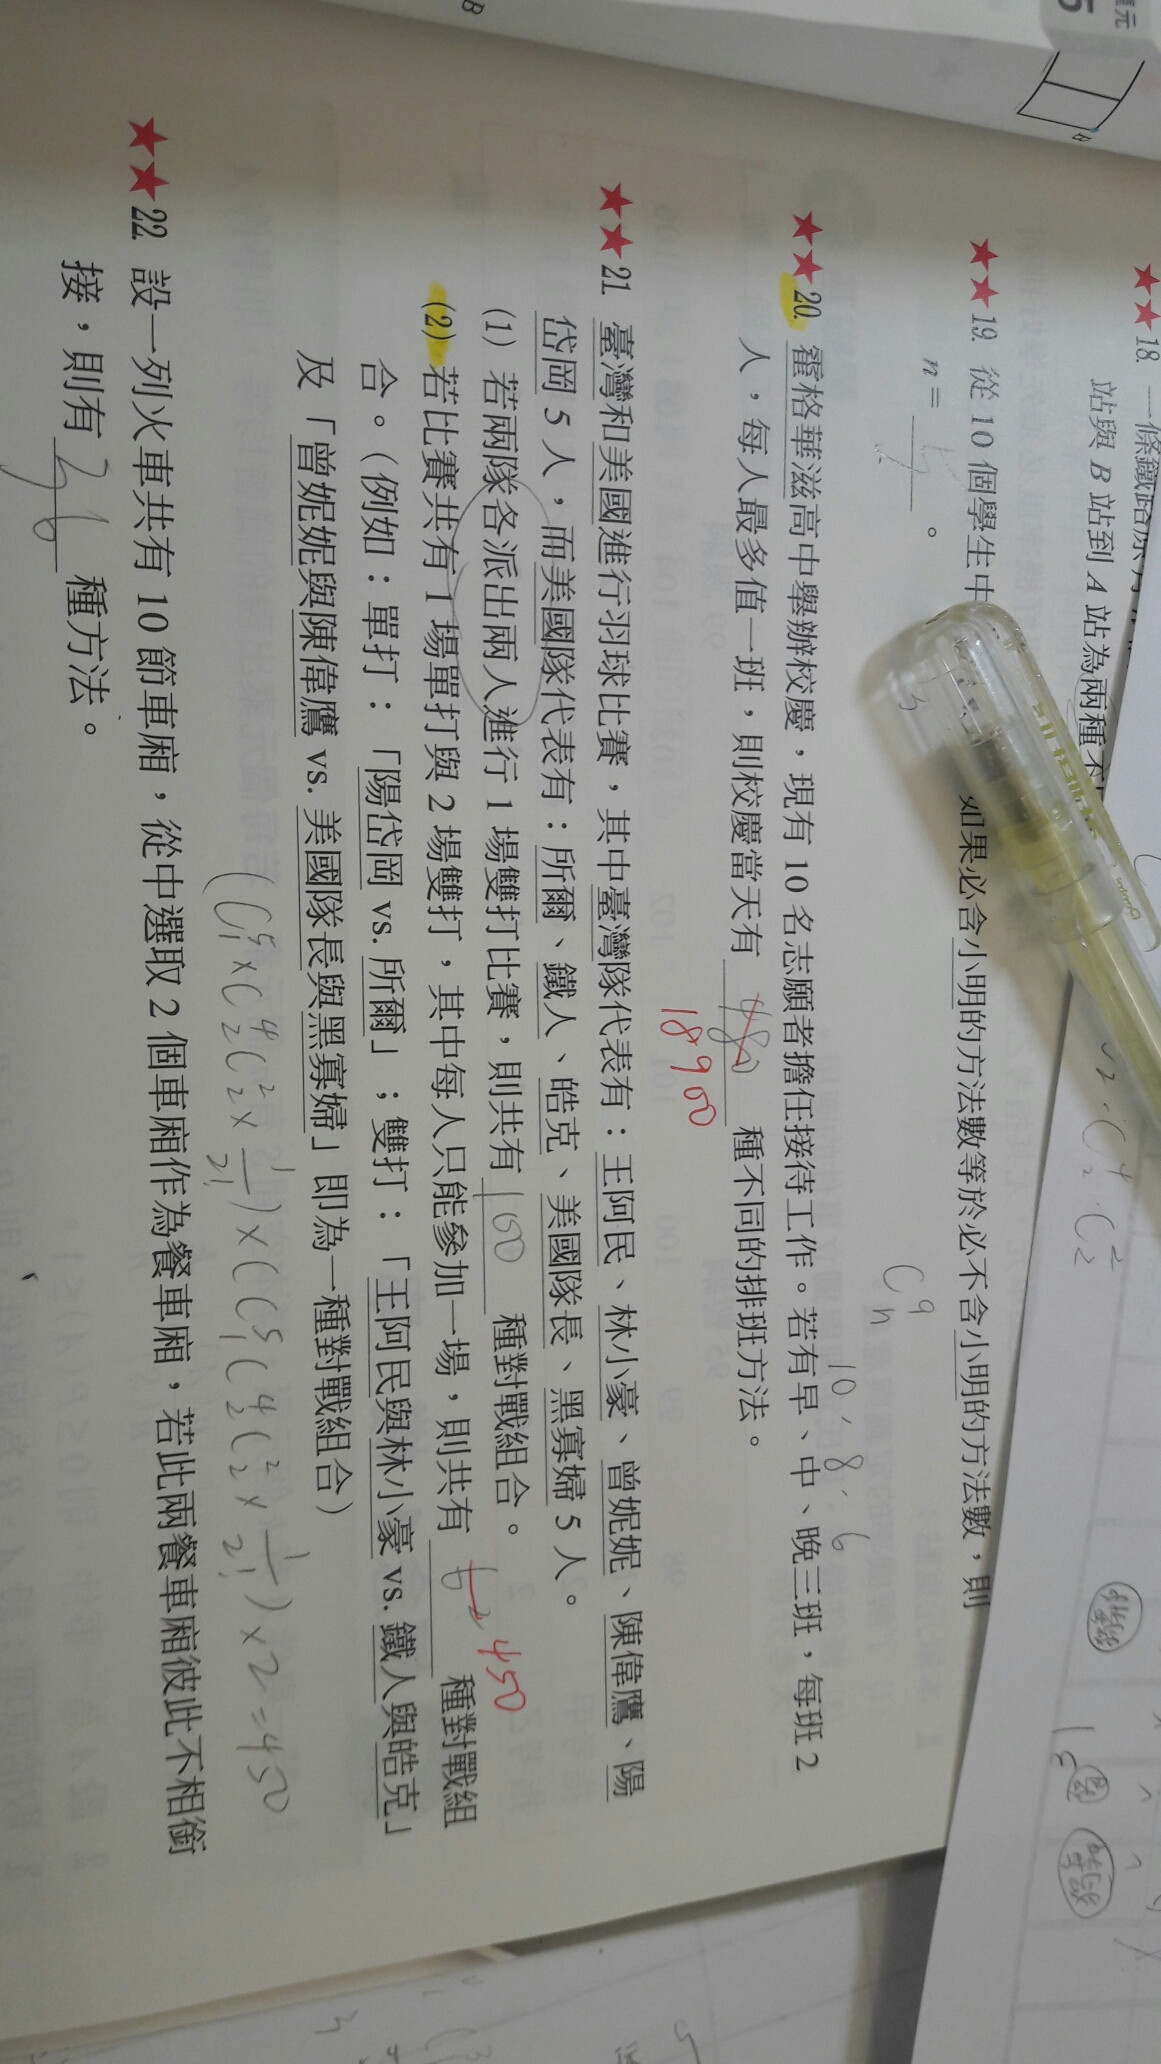 單元
5
B
B
★★18. 一條鐵路原有
站與 B 站到 A 站為兩種不
★★19. 從 10 個學生中
如果必含小明的方法數等於必不含小明的方法數，則
n = 。
★★20. 霍格華滋高中舉辦校慶，現有 10 名志願者擔任接待工作。若有早、中、晚三班，每班 2
人，每人最多值一班，則校慶當天有 480 種不同的排班方法。
18900
10、8、6
C⁹ₙ
★★21. 臺灣和美國進行羽球比賽，其中臺灣隊代表有：王阿民、林小豪、曾妮妮、陳偉鷹、陽
岱岡 5 人，而美國隊代表有：所爾、鐵人、皓克、美國隊長、黑寡婦 5 人。
(1) 若兩隊各派出兩人進行 1 場雙打比賽，則共有 100 種對戰組合。
(2) 若比賽共有 1 場單打與 2 場雙打，其中每人只能參加一場，則共有 450 種對戰組
合。（例如：單打：「陽岱岡 vs. 所爾」；雙打：「王阿民與林小豪 vs. 鐵人與皓克」
及「曾妮妮與陳偉鷹 vs. 美國隊長與黑寡婦」即為一種對戰組合）
(C⁵₁×C⁴₂C²₂×1/2!)×(C⁵₁C⁴₂C²₂×1/2!)×2=450
★★22. 設一列火車共有 10 節車廂，從中選取 2 個車廂作為餐車廂，若此兩餐車廂彼此不相銜
接，則有 36 種方法。